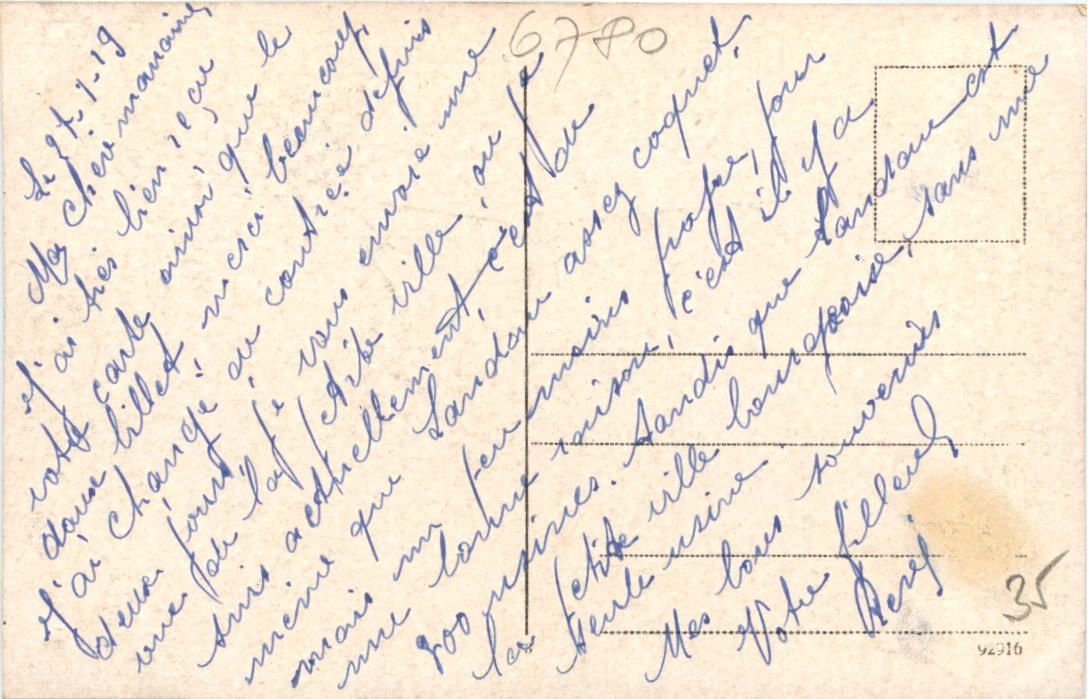 6780
Le 27-7-19
Ma chère marraine,
J'ai très bien reçu
votre carte ainsi que le
doux billet, merci beaucoup,
J'ai changé de contrée depuis
deux jours, je vous envoie une
vue de la petite ville, où je
suis actuellement, c'est du
même que Landau assez coquet,
mais un peu moins propre, pour
une bonne raison, c'est il y a
800 usines. tandis que Landau est
la petite ville bourgeoise, sans une
seule usine.
Mes bons souvenirs
Votre filleul
35
92916